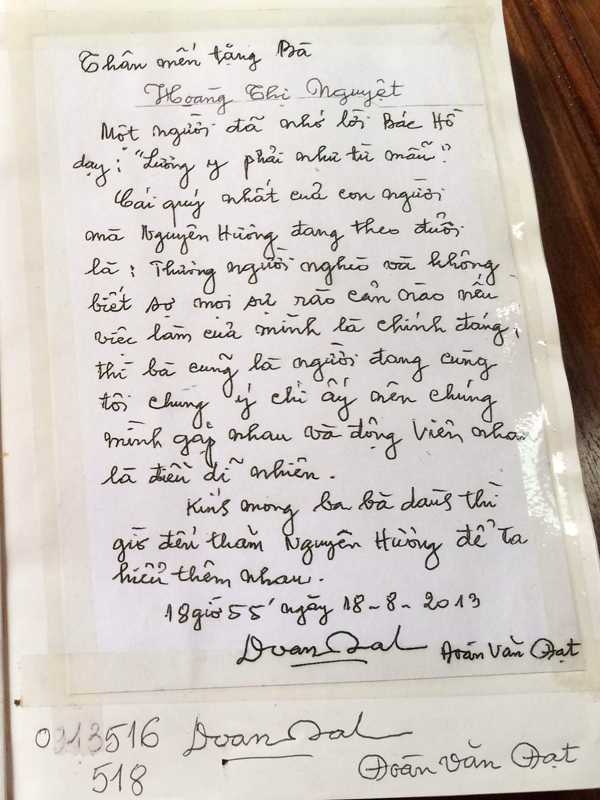 Thân mến tặng Bà
Hoàng Thị Nguyệt
Một người đã nhớ lời Bác Hồ
dạy: "Lương y phải như từ mẫu".
Cái quý nhất của con người
mà Nguyên Hường đang theo đuổi
là: Thương người nghèo và không
biết sợ mọi sự rào cản nào nếu
việc làm của mình là chính đáng,
thì bà cũng là người đang cùng
tôi chung ý chí ấy nên chúng
mình gặp nhau và động viên nhau
là điều dĩ nhiên.
Kính mong ba bà dành thì
giờ đến thăm Nguyên Hường để ta
hiểu thêm nhau.
18 giờ 55' ngày 18-8-2013
Doan Dat Đoàn Văn Đạt
0313516 Doan Dat
518 Đoàn Văn Đạt